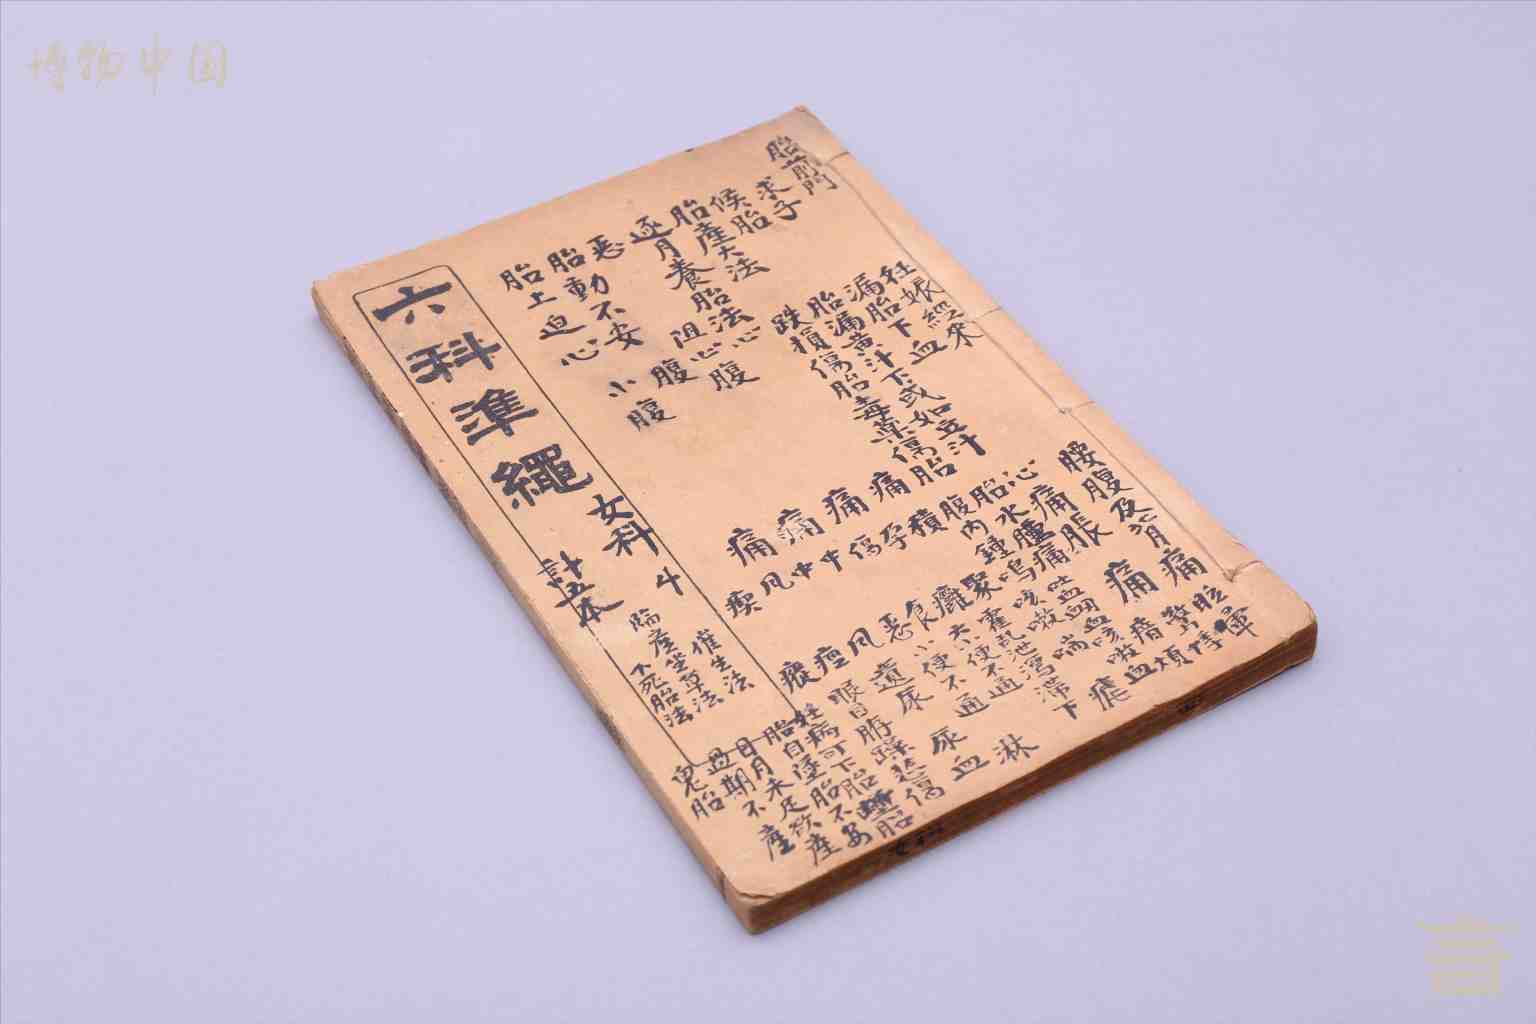 博物中国
胎前門
求子
候胎
胎產大法
逐月養胎法
惡阻
胎動不安
胎上迫心
心腹痛
心腹痛
腹痛
小腹痛
妊娠經來
漏胎下血
胎漏黄汁下或如豆汁
跌損傷胎
毒藥傷胎
心痛
胎水腫
腹內鐘鳴
積聚
孕癰
傷食
中惡
中風
風痙
瘛瘲
腰腹及背痛
脹痛
吐血衄血
咳嗽
喘
霍亂
泄瀉
滯下
大小便不通
遺尿
尿血
淋
眼目
臍躁悲傷
墮胎
妊病可下胎不安
胎自墜
日月未足欲產
過期不產
鬼胎
六科準繩
女科
计五本
催生法
臨產坐草法
下死胎法
女科